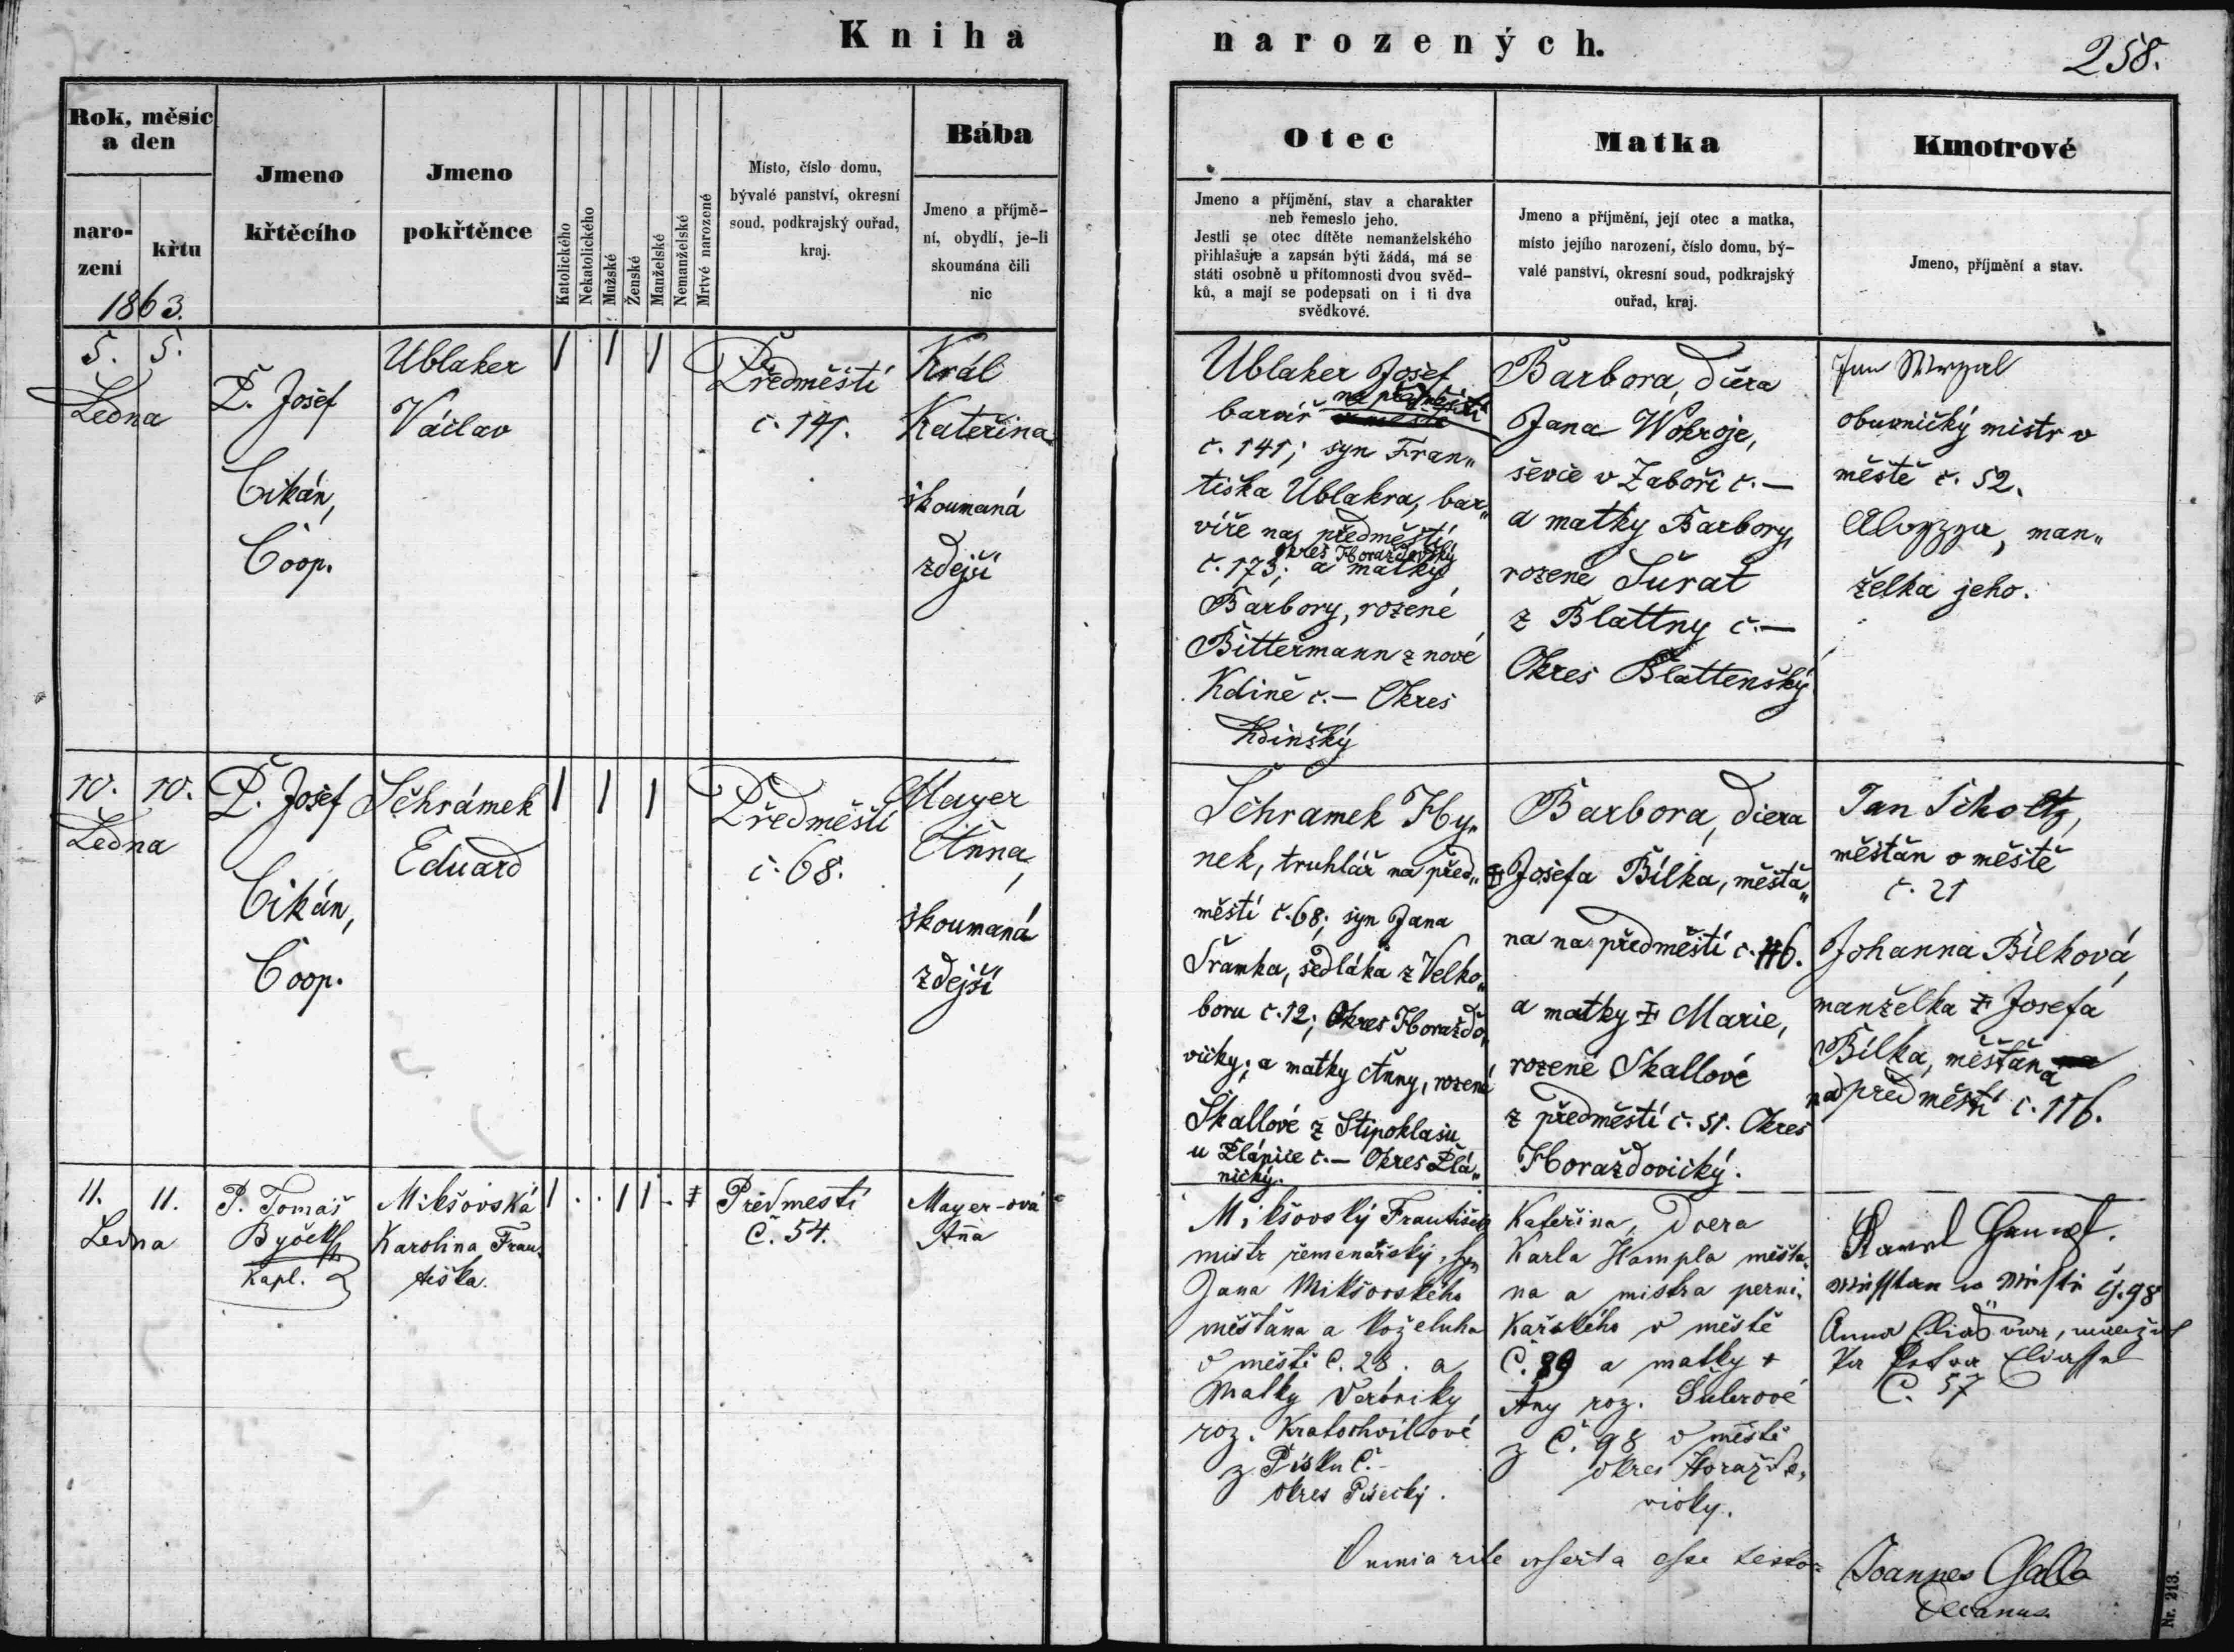 Kniha narozených.
258.
Rok, měsíc
a den
naro-
zení
křtu
1863.
Jmeno
křtěcího
Jmeno
pokřtěnce
Katolického
Nekatolického
Mužské
Ženské
Manželské
Nemanželské
Mrtvé narozené
Místo, číslo domu,
bývalé panství, okresní
soud, podkrajský ouřad,
kraj.
Bába
Jmeno a příjmě-
ní, obydlí, je-li
skoumána čili
nic
Otec
Jmeno a příjmění, stav a charakter
neb řemeslo jeho.
Jestli se otec dítěte nemanželského
přihlašuje a zapsán býti žádá, má se
státi osobně u přítomnosti dvou svěd-
ků, a mají se podepsati on i ti dva
svědkové.
Matka
Jmeno a příjmění, její otec a matka,
místo jejího narození, číslo domu, bý-
valé panství, okresní soud, podkrajský
ouřad, kraj.
Kmotrové
Jmeno, příjmění a stav.
5. 5.
Ledna
P. Josef
Cikán,
Coop.
Ublaker
Václav
1 1 1
Předměstí
č. 141.
Král
Kateřina
skoumaná
zdejší
Ublaker Josef
barvíř na předměstí
č. 141; syn Fran„
tiška Ublakra, bar„
víře na předměstí
okres Horažďovský
č. 173; a matky
Barbory, rozené
Bittermann z nové
Kdině č. — Okres
Kdinský
Barbora, dcera
Jana Wokroje,
ševce v Zaboří č. —
a matky Barbory,
rozené Šurat
z Blattny č. —
Okres Blattenský
Jan
obuvnický mistr v
městě č. 52.
Aloyzya, man„
želka jeho.
10. 10.
Ledna
P. Josef
Cikán,
Coop.
Schrámek
Eduard
1 1 1
Předměstí
č. 68.
Mayer
Anna,
skoumaná
zdejší
Schramek Hy„
nek, truhlář na před„
městí č. 68; syn Jana
Šramka, sedláka z Velko„
boru č. 12; Okres Horažďo„
vický; a matky Anny, rozené
Skallové z Stipoklasu
u Plánice č. — Okres Plá„
nický.
Barbora, dcera
‡ Josefa Bílka, měšťa„
na na předměstí č. 116.
a matky ‡ Marie,
rozené Skallové
z předměstí č. 51. Okres
Horažďovický.
Jan Scholtz,
měšťan v městě
č. 21
Johanna Bílková,
manželka ‡ Josefa
Bílka, měšťana
na předměstí č. 116.
11. 11.
Ledna
P. Tomáš
Byček
Kapl.
Mikšovská
Karolina Fran„
tiška.
1 . . 1 1 - ‡
Předmestí
Č. 54.
Mayer-ová
Aña
Mikšovský František
mistr řemenářský, syn
Jana Mikšovského
měšťana a koželuha
v městě č. 28. a
Matky Veroniky
roz. Kratochvílové
z Písku č. -
okres Písecký.
Kateřina, dcera
Karla Hampla měšťa„
na a mistra perni„
kařského v městě
č. 89 a matky +
Any roz. Šulerové
z č. 98 v městě
okres Horažďo„
vický.
Karel
č. 98
Anna
Č. 57
Omnia rite inserta esse testor
Joannes Galla
Decanus.
Nr. 213.